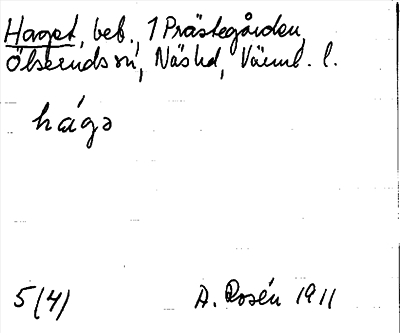 Haget, beb., 1 Prästegården,
Ölserud sn, Näs hd, Värml. l.
hágə
5(4) A. Rosén 1911